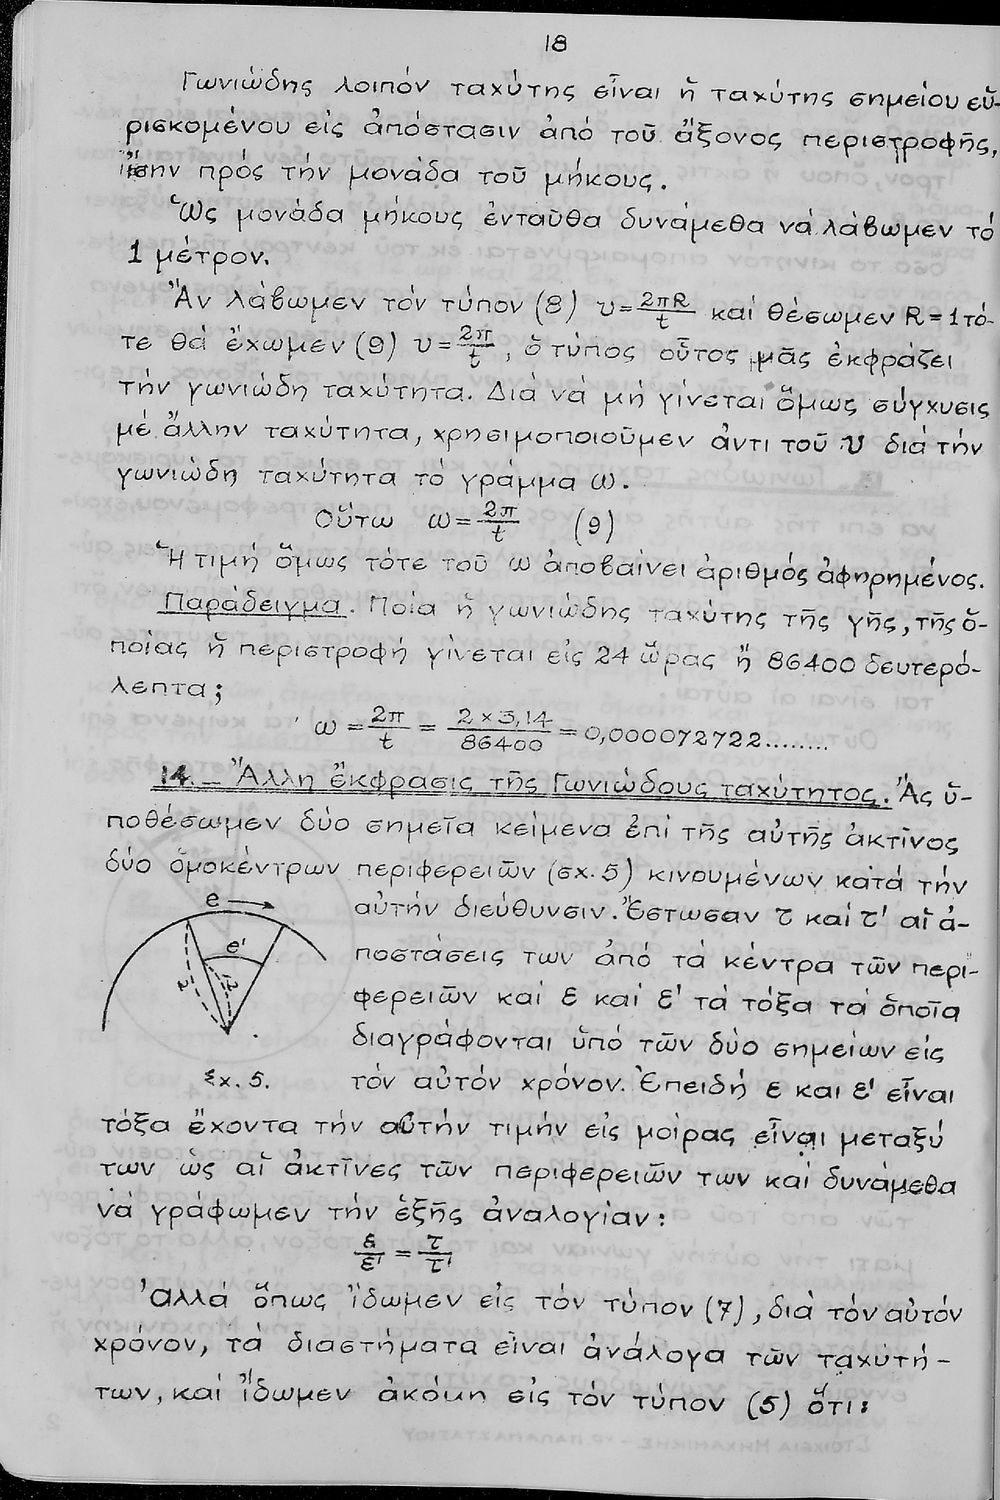 18
Γωνιώδης λοιπόν ταχύτης εἶναι ἡ ταχύτης σημείου εὑ-
ρισκομένου εἰς ἀπόστασιν ἀπό τοῦ ἄξονος περιστροφῆς,
ἴσην πρός τήν μονάδα τοῦ μήκους.
Ὡς μονάδα μήκους ἐνταῦθα δυνάμεθα νά λάβωμεν τό
1 μέτρον.
Ἄν λάβωμεν τόν τύπον (8) υ = 2πR/t καί θέσωμεν R = 1 τό-
τε θά ἔχωμεν (9) υ = 2π/t, ὁ τύπος οὗτος μᾶς ἐκφράζει
τήν γωνιώδη ταχύτητα. Διά νά μή γίνεται ὅμως σύγχυσις
μέ ἄλλην ταχύτητα, χρησιμοποιοῦμεν ἀντι τοῦ υ διά τήν
γωνιώδη ταχύτητα τό γράμμα ω.
Οὕτω ω = 2π/t (9)
Ἡ τιμή ὅμως τότε τοῦ ω ἀποβαίνει ἀριθμός ἀφηρημένος.
Παράδειγμα. Ποία ἡ γωνιώδης ταχύτης τῆς γῆς, τῆς ὁ-
ποίας ἡ περιστροφή γίνεται εἰς 24 ὥρας ἤ 86400 δευτερό-
λεπτα;
ω = 2π/t = 2 × 3,14/86400 = 0,000072722........
14. - Ἄλλη ἔκφρασις τῆς Γωνιώδους ταχύτητος. Ἄς ὑ-
ποθέσωμεν δύο σημεῖα κείμενα ἐπί τῆς αὐτῆς ἀκτῖνος
δύο ὁμοκέντρων περιφερειῶν (σχ. 5) κινουμένων κατά τήν
αὐτήν διεύθυνσιν. Ἔστωσαν τ καί τ' αἱ ἀ-
ποστάσεις των ἀπό τά κέντρα τῶν περι-
φερειῶν καί ε καί ε' τά τόξα τά ὁποῖα
διαγράφονται ὑπό τῶν δύο σημείων εἰς
τόν αὐτόν χρόνον. Ἐπειδή ε και ε' εἶναι
e
e'
σχ. 5.
τόξα ἔχοντα τήν αὐτήν τιμήν εἰς μοίρας εἶναι μεταξύ
των ὡς αἱ ἀκτῖνες τῶν περιφερειῶν των καί δυνάμεθα
νά γράφωμεν τήν ἑξῆς ἀναλογίαν:
ε/ε' = τ/τ'
Ἀλλά ὅπως ἴδωμεν εἰς τόν τύπον (7), διά τόν αὐτόν
χρόνον, τά διαστήματα εἶναι ἀνάλογα τῶν ταχυτή-
των, καί ἴδωμεν ἀκόμη εἰς τόν τύπον (5) ὅτι: